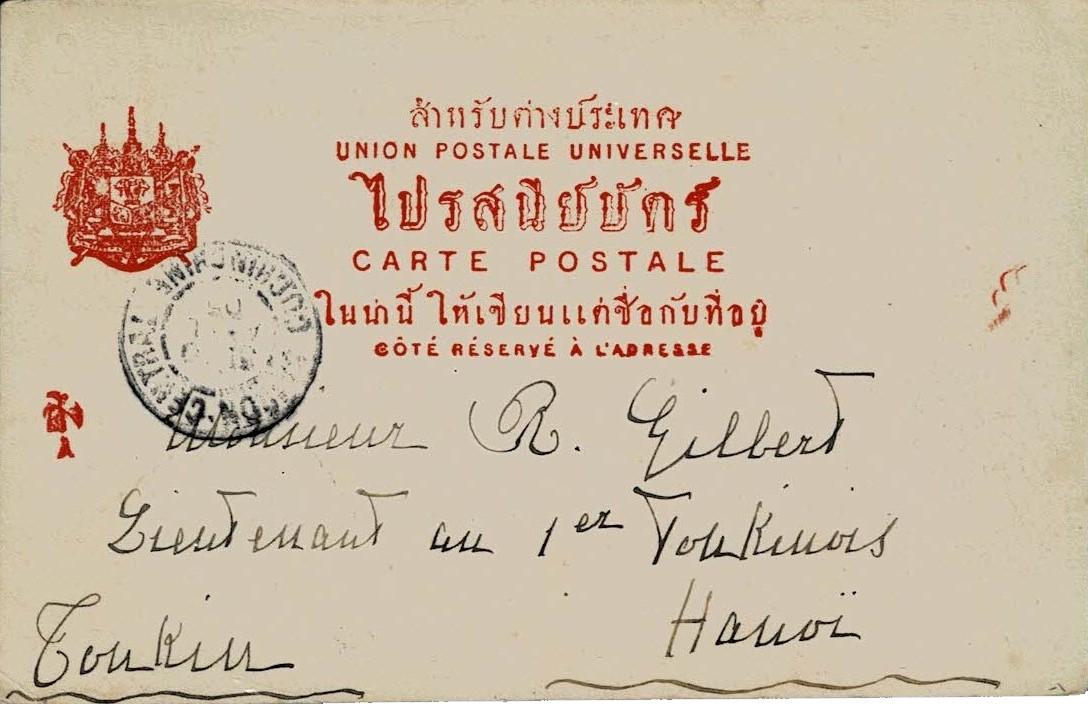 สำหรับต่างประเทศ
UNION POSTALE UNIVERSELLE
ไปรสนีย์บัตร์
CARTE POSTALE
ในน่านี้ ให้เขียนแต่ชื่อกับที่อยู่
CÔTÉ RÉSERVÉ À L'ADRESSE
CENTRAL COCHINCHINE
Monsieur R. Gilbert
Lieutenant au 1er Tonkinois
Hanoï
Tonkin